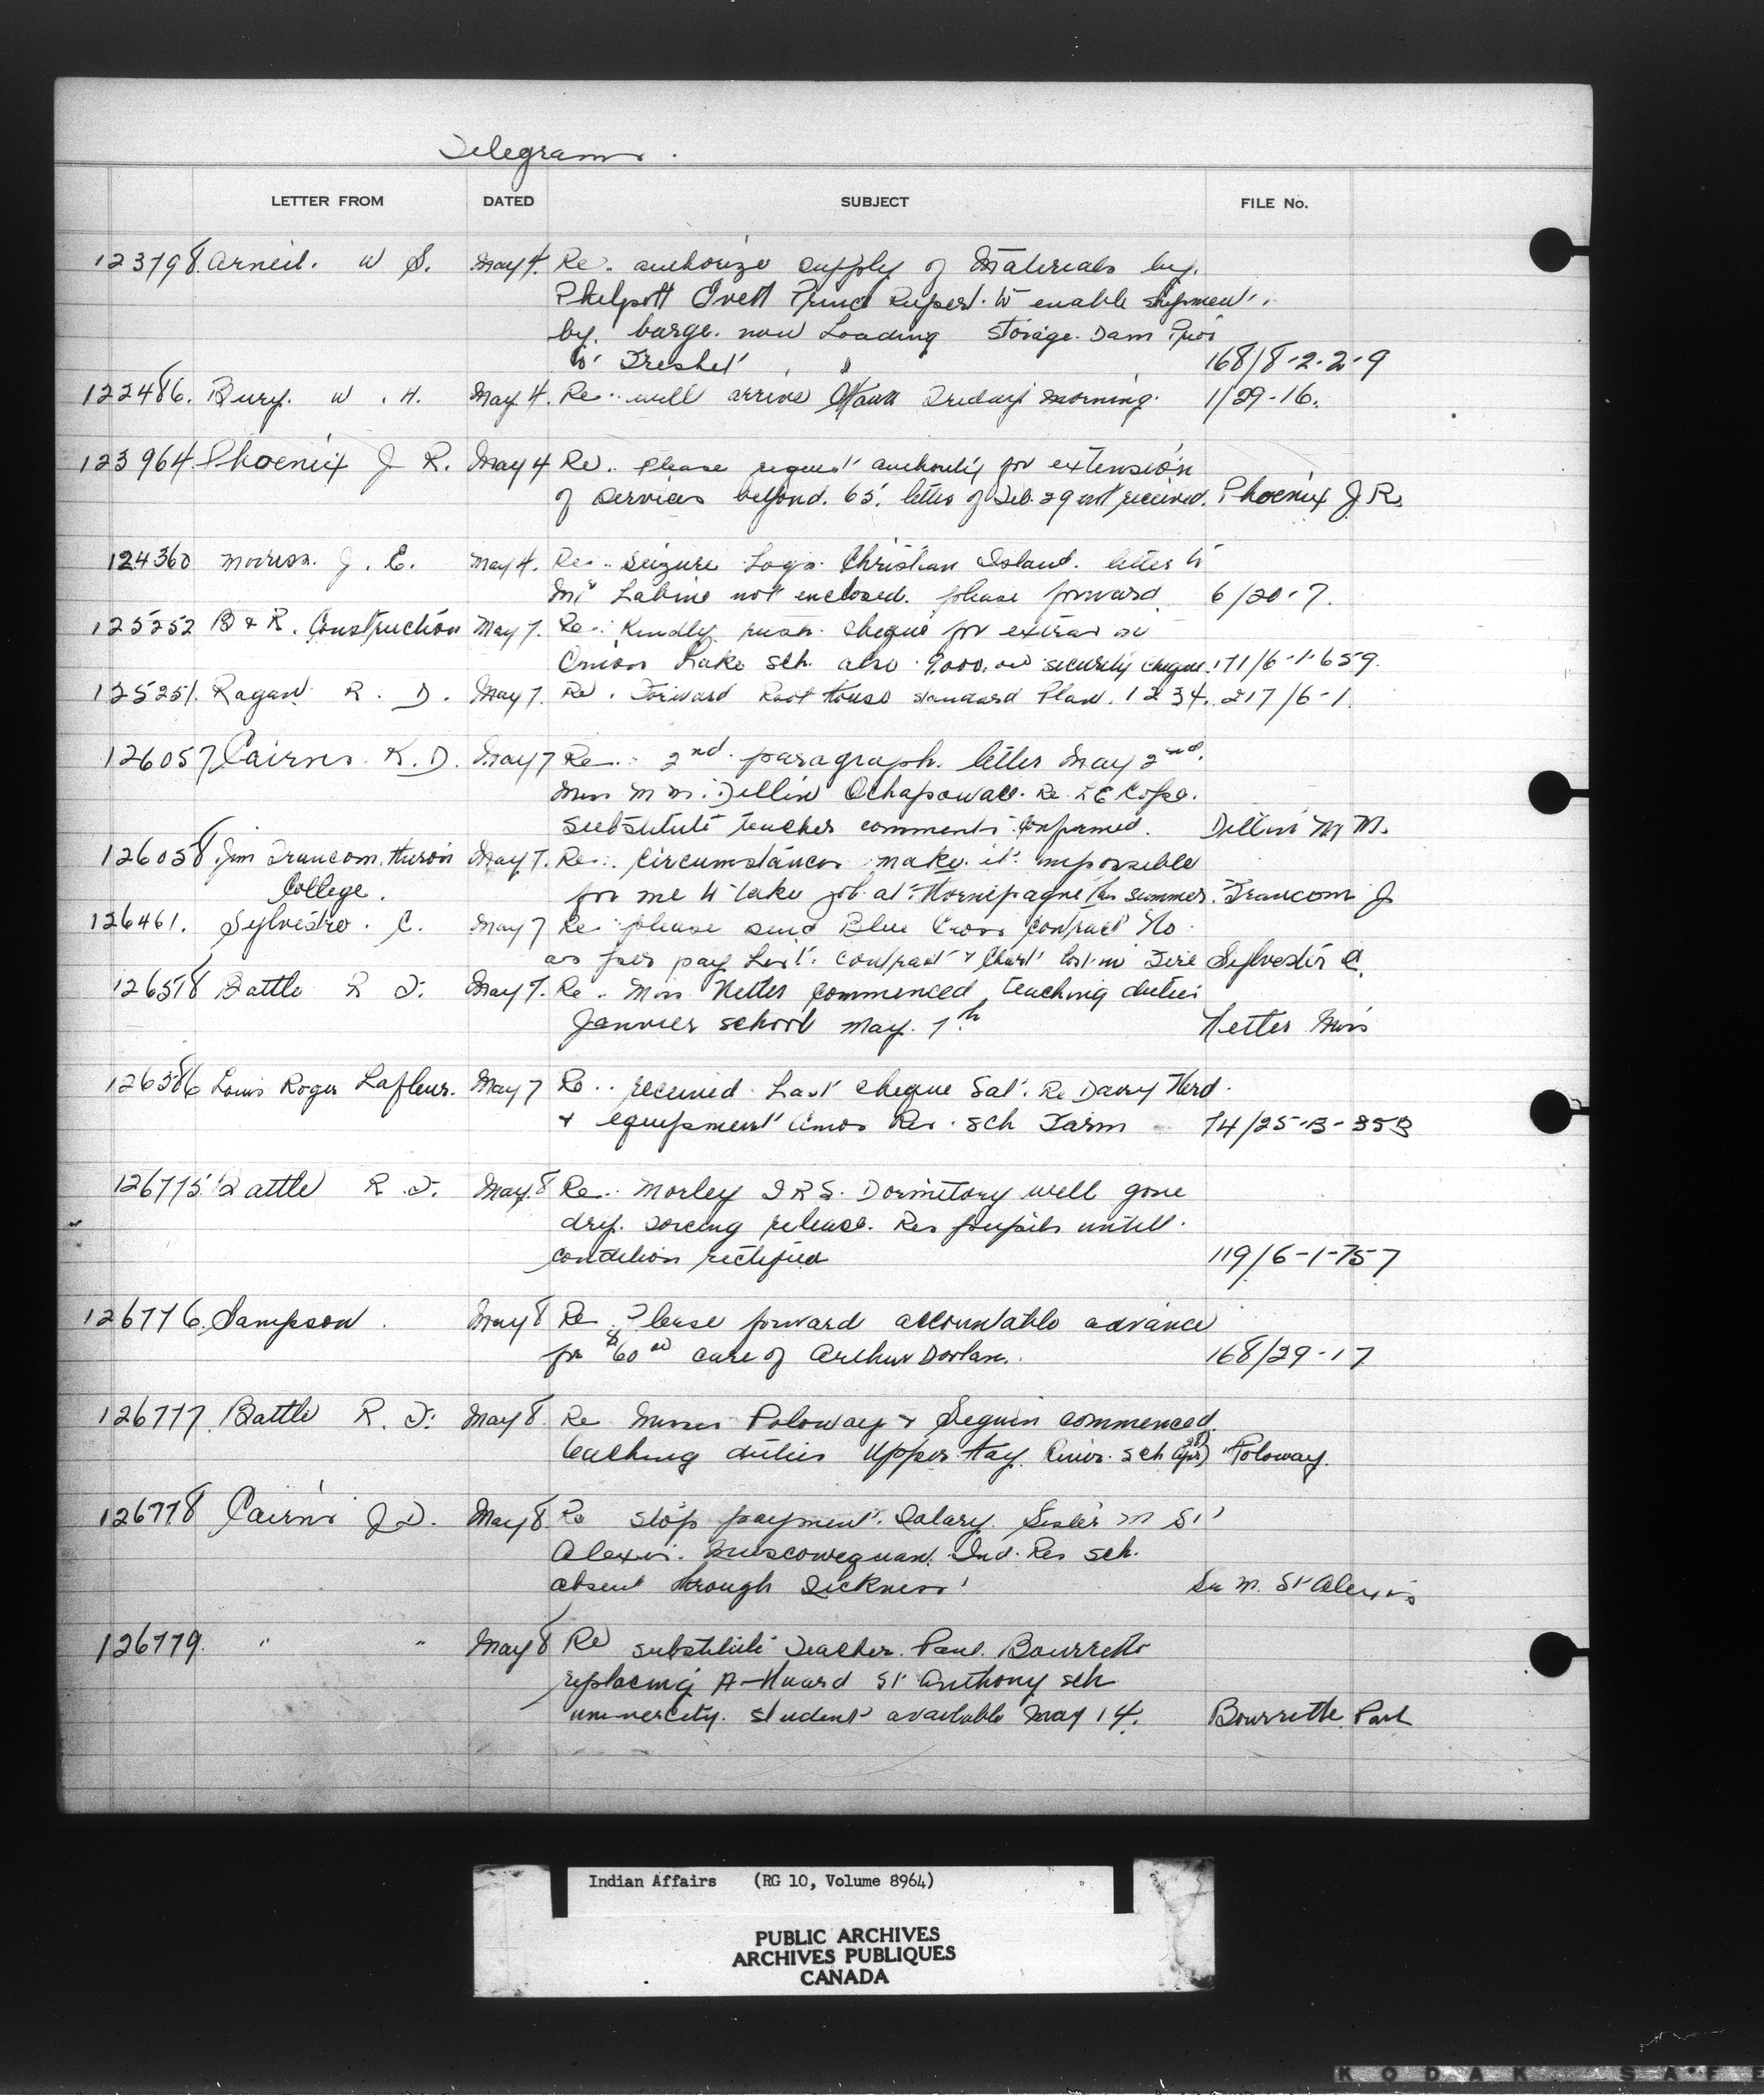 Telegrams.
LETTER FROM DATED SUBJECT FILE No.
123798 Arneil. W S. May 4. Re. authorize supply of Materials by.
Philpott Evett Prince Rupert. to enable shipment
by. barge. now Loading Storage. Dam Prior
to Freshet 168/8-2-2-9
122486. Bury. W. H. May 4. Re.. will arrive Ottawa Friday morning. 1/29-16.
123964 Phoenix J R. May 4 Re.. Please request authority for extension
of services beyond. 65. letter of Feb. 29 not received. Phoenix J R.
124360 Morison. J. E. May 4. Re.. seizure Logs Christian Island. letter to
Mr Labine not enclosed. please forward 6/20-7.
125252 B & R. Construction May 7. Re.. Kindly rush. cheque for extras on
Onion Lake sch. also 9000.00 security cheque. 171/6-1-659.
125251. Ragan R. D. May 7. Re. Forward Root House standard Plan. 1234. 217/6-1.
126057 Cairns. K. D. May 7 Re.. 2nd. paragraph. letter May 2nd.
Miss M M. Dellin Ochapowace. Re.
substitute teacher comments confirmed. Dellin M M.
126058 Jim Francom. Huron May 7. Re.. Circumstances make it impossible
College. for me to take job at Hornepayne for summer. Francom J
126461. Sylvestre. C. May 7 Re please send Blue Cross contract No
as per pay List. contract & Chart lost in Fire Sylvester C.
126518 Battle R F. May 7. Re. Miss Netter commenced teaching duties
Janvier school May. 7th Netter Miss
126586 Louis Roger Lafleur. May 7 Re.. received Last cheque Sat. Re Dairy Herd.
& equipment Amos Res. sch Farm 74/25-B-353
126775 Battle R. F. May. 8 Re.. Morley I R S. Dormitory well gone
dry. forcing release. Res pupils untill.
condition rectified 119/6-1-757
126776. Sampson. May 8 Re. Please forward accountable advance
for $60.00 care of Arthur Dorlan. 168/29-17
126777. Battle R. F. May 8. Re Misses Poloway & Seguin commenced
teaching duties Upper Hay River. sch Poloway.
126778 Cairns J D. May 8. Re stop payment. Salary. Sister M St
Alexis. Muscowequan. Ind. Res sch.
absent through sickness Sr M. St Alexis
126779. " " May 8 Re substitute Teacher. Paul. Bourrette
replacing A-Huard St Anthony sch
univercity. student available May 14. Bourrette. Paul
Indian Affairs (RG 10, Volume 8964)
PUBLIC ARCHIVES
ARCHIVES PUBLIQUES
CANADA
KODAK SAFE